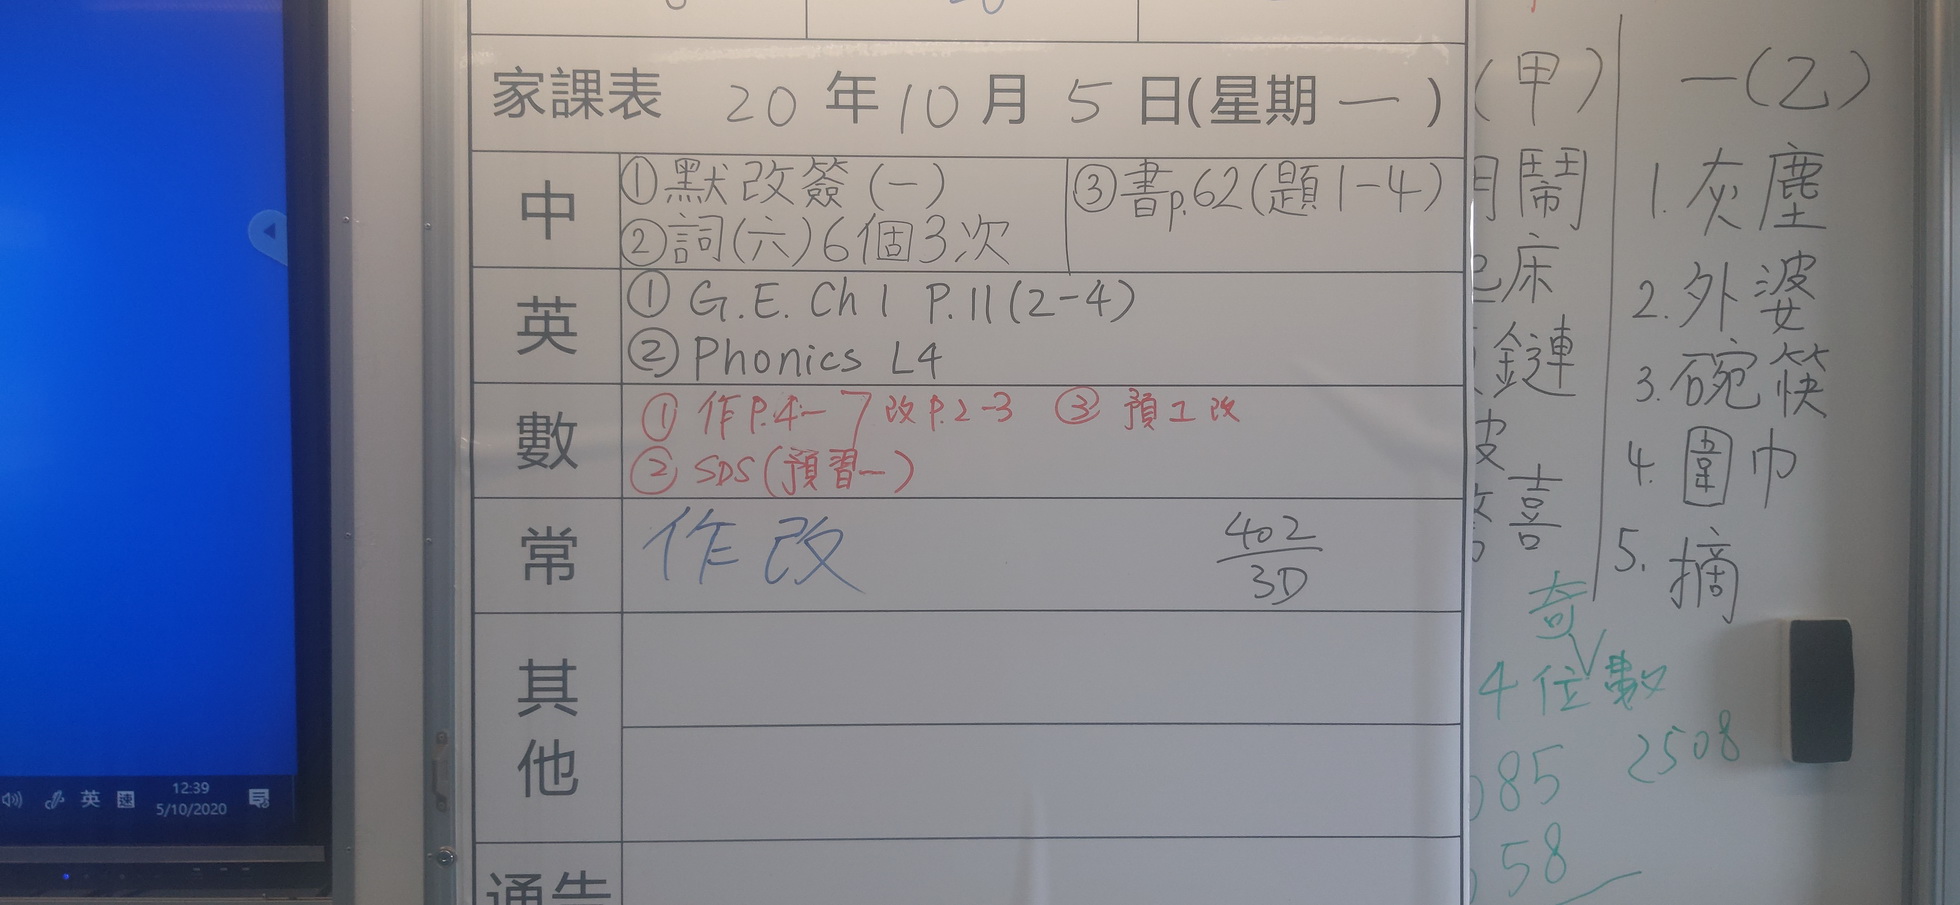 家課表 20年10月5日(星期一)
中
①默改簽(一)
②詞(六)6個3次
③書p.62(題1-4)
英
① G.E. Ch 1 P.11(2-4)
② Phonics L4
數
① 作P.4-7改P.2-3 ③ 預工改
② SDS(預習一)
常
作改
402
3D
其他
通告
(甲)
鬧
床
鏈
皮
喜
一(乙)
1. 灰塵
2. 外婆
3. 碗筷
4. 圍巾
5. 摘
奇
4位數
85
2508
58
12:39
英
速
5/10/2020